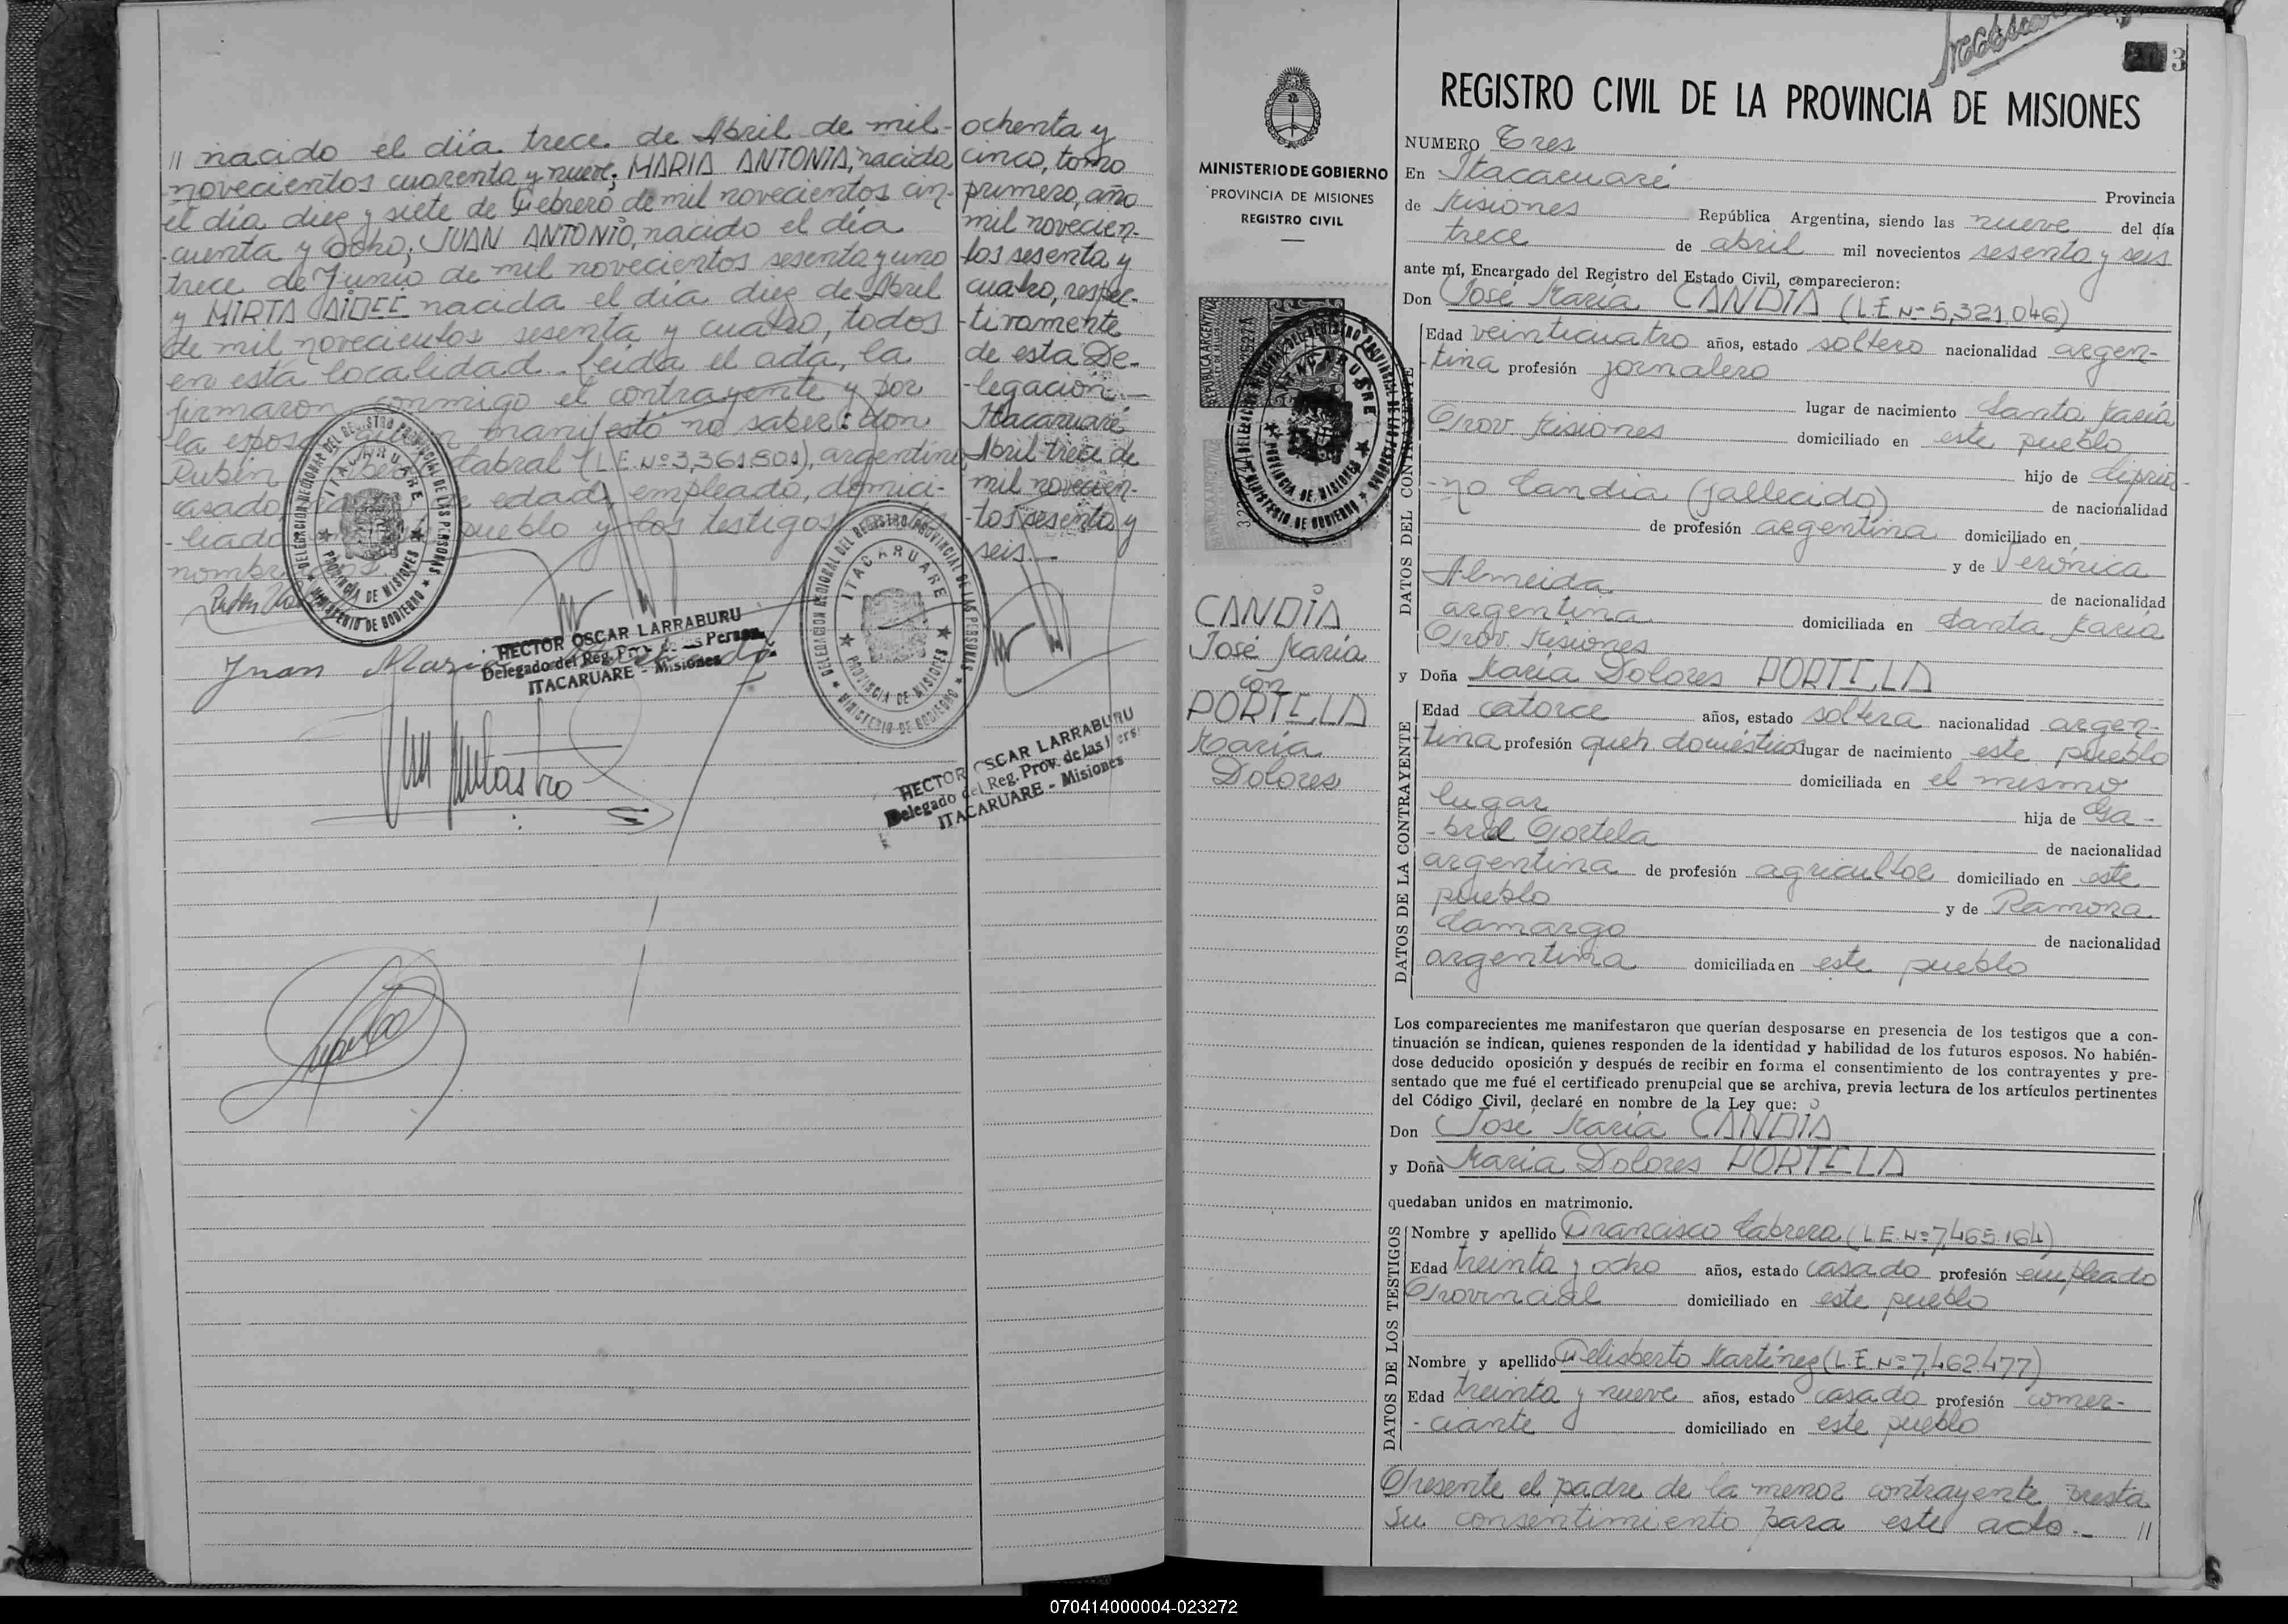 // nacido el día trece de Abril de mil
novecientos cuarenta y nueve; MARIA ANTONIA, nacida
el día diez y siete de Febrero de mil novecientos cin-
-cuenta y ocho; JUAN ANTONIO, nacido el día
trece de Junio de mil novecientos sesenta y uno
y MIRTA AIDEE nacida el día diez de Abril
de mil novecientos sesenta y cuatro, todos
en esta localidad. Leída el acta, la
firmaron conmigo el contrayente y por
la esposa manifestó no saber: don
Rubén Cabral (L.E. Nº 3,361.501), argentino,
casado, de edad, empleado, domici-
-liado pueblo y los testigos
nombr
Juan
HECTOR OSCAR LARRABURU
Delegado del Reg. Prov. de las Person.
ITACARUARE - Misiones
DELEGACION REGIONAL DEL REGISTRO PROVINCIAL DE LAS PERSONAS
ITACARUARE
PROVINCIA DE MISIONES
MINISTERIO DE GOBIERNO
DELEGACION REGIONAL DEL REGISTRO PROVINCIAL DE LAS PERSONAS
ITACARUARE
PROVINCIA DE MISIONES
MINISTERIO DE GOBIERNO
ochenta y
cinco, tomo
primero, año
mil novecien-
-tos sesenta y
cuatro, respec-
-tivamente
de esta De-
-legación.-
Itacaruaré
Abril trece de
mil novecien-
-tos sesenta y
seis.-
HECTOR OSCAR LARRABURU
Delegado del Reg. Prov. de las Pers
ITACARUARE - Misiones
MINISTERIO DE GOBIERNO
PROVINCIA DE MISIONES
REGISTRO CIVIL
REPUBLICA ARGENTINA
CANDIA
José María
con
PORTELA
María
Dolores
3
REGISTRO CIVIL DE LA PROVINCIA DE MISIONES
NUMERO Tres
En Itacaruaré Provincia
de Misiones República Argentina, siendo las nueve del día
trece de abril mil novecientos sesenta y seis
ante mí, Encargado del Registro del Estado Civil, comparecieron:
Don José María CANDIA (L.E. Nº 5,321,046)
DATOS DEL CONTRAYENTE
Edad veinticuatro años, estado soltero nacionalidad argen-
-tina profesión jornalero
lugar de nacimiento Santa María
Prov. Misiones domiciliado en este pueblo
hijo de Cipria-
-no Candia (fallecido) de nacionalidad
de profesión argentina domiciliado en
y de Verónica
Almeida de nacionalidad
argentina domiciliada en Santa María
Prov. Misiones
y Doña María Dolores PORTELA
DATOS DE LA CONTRAYENTE
Edad catorce años, estado soltera nacionalidad argen-
-tina profesión queh. domésticos lugar de nacimiento este pueblo
domiciliada en el mismo
lugar hija de Ga-
-briel Portela de nacionalidad
argentina de profesión agricultor domiciliado en este
pueblo y de Ramona
Camargo de nacionalidad
argentina domiciliada en este pueblo
Los comparecientes me manifestaron que querían desposarse en presencia de los testigos que a con-
tinuación se indican, quienes responden de la identidad y habilidad de los futuros esposos. No habién-
dose deducido oposición y después de recibir en forma el consentimiento de los contrayentes y pre-
sentado que me fué el certificado prenupcial que se archiva, previa lectura de los artículos pertinentes
del Código Civil, declaré en nombre de la Ley que:
Don José María CANDIA
y Doña María Dolores PORTELA
quedaban unidos en matrimonio.
DATOS DE LOS TESTIGOS
Nombre y apellido Francisco Cabrera (L.E. Nº 7,465.164)
Edad treinta y ocho años, estado casado profesión empleado
Provincial domiciliado en este pueblo
Nombre y apellido Felisberto Martínez (L.E. Nº 7,462.477)
Edad treinta y nueve años, estado casado profesión comer-
-ciante domiciliado en este pueblo
Presente el padre de la menor contrayente presta
su consentimiento para este acto.- //
070414000004-023272